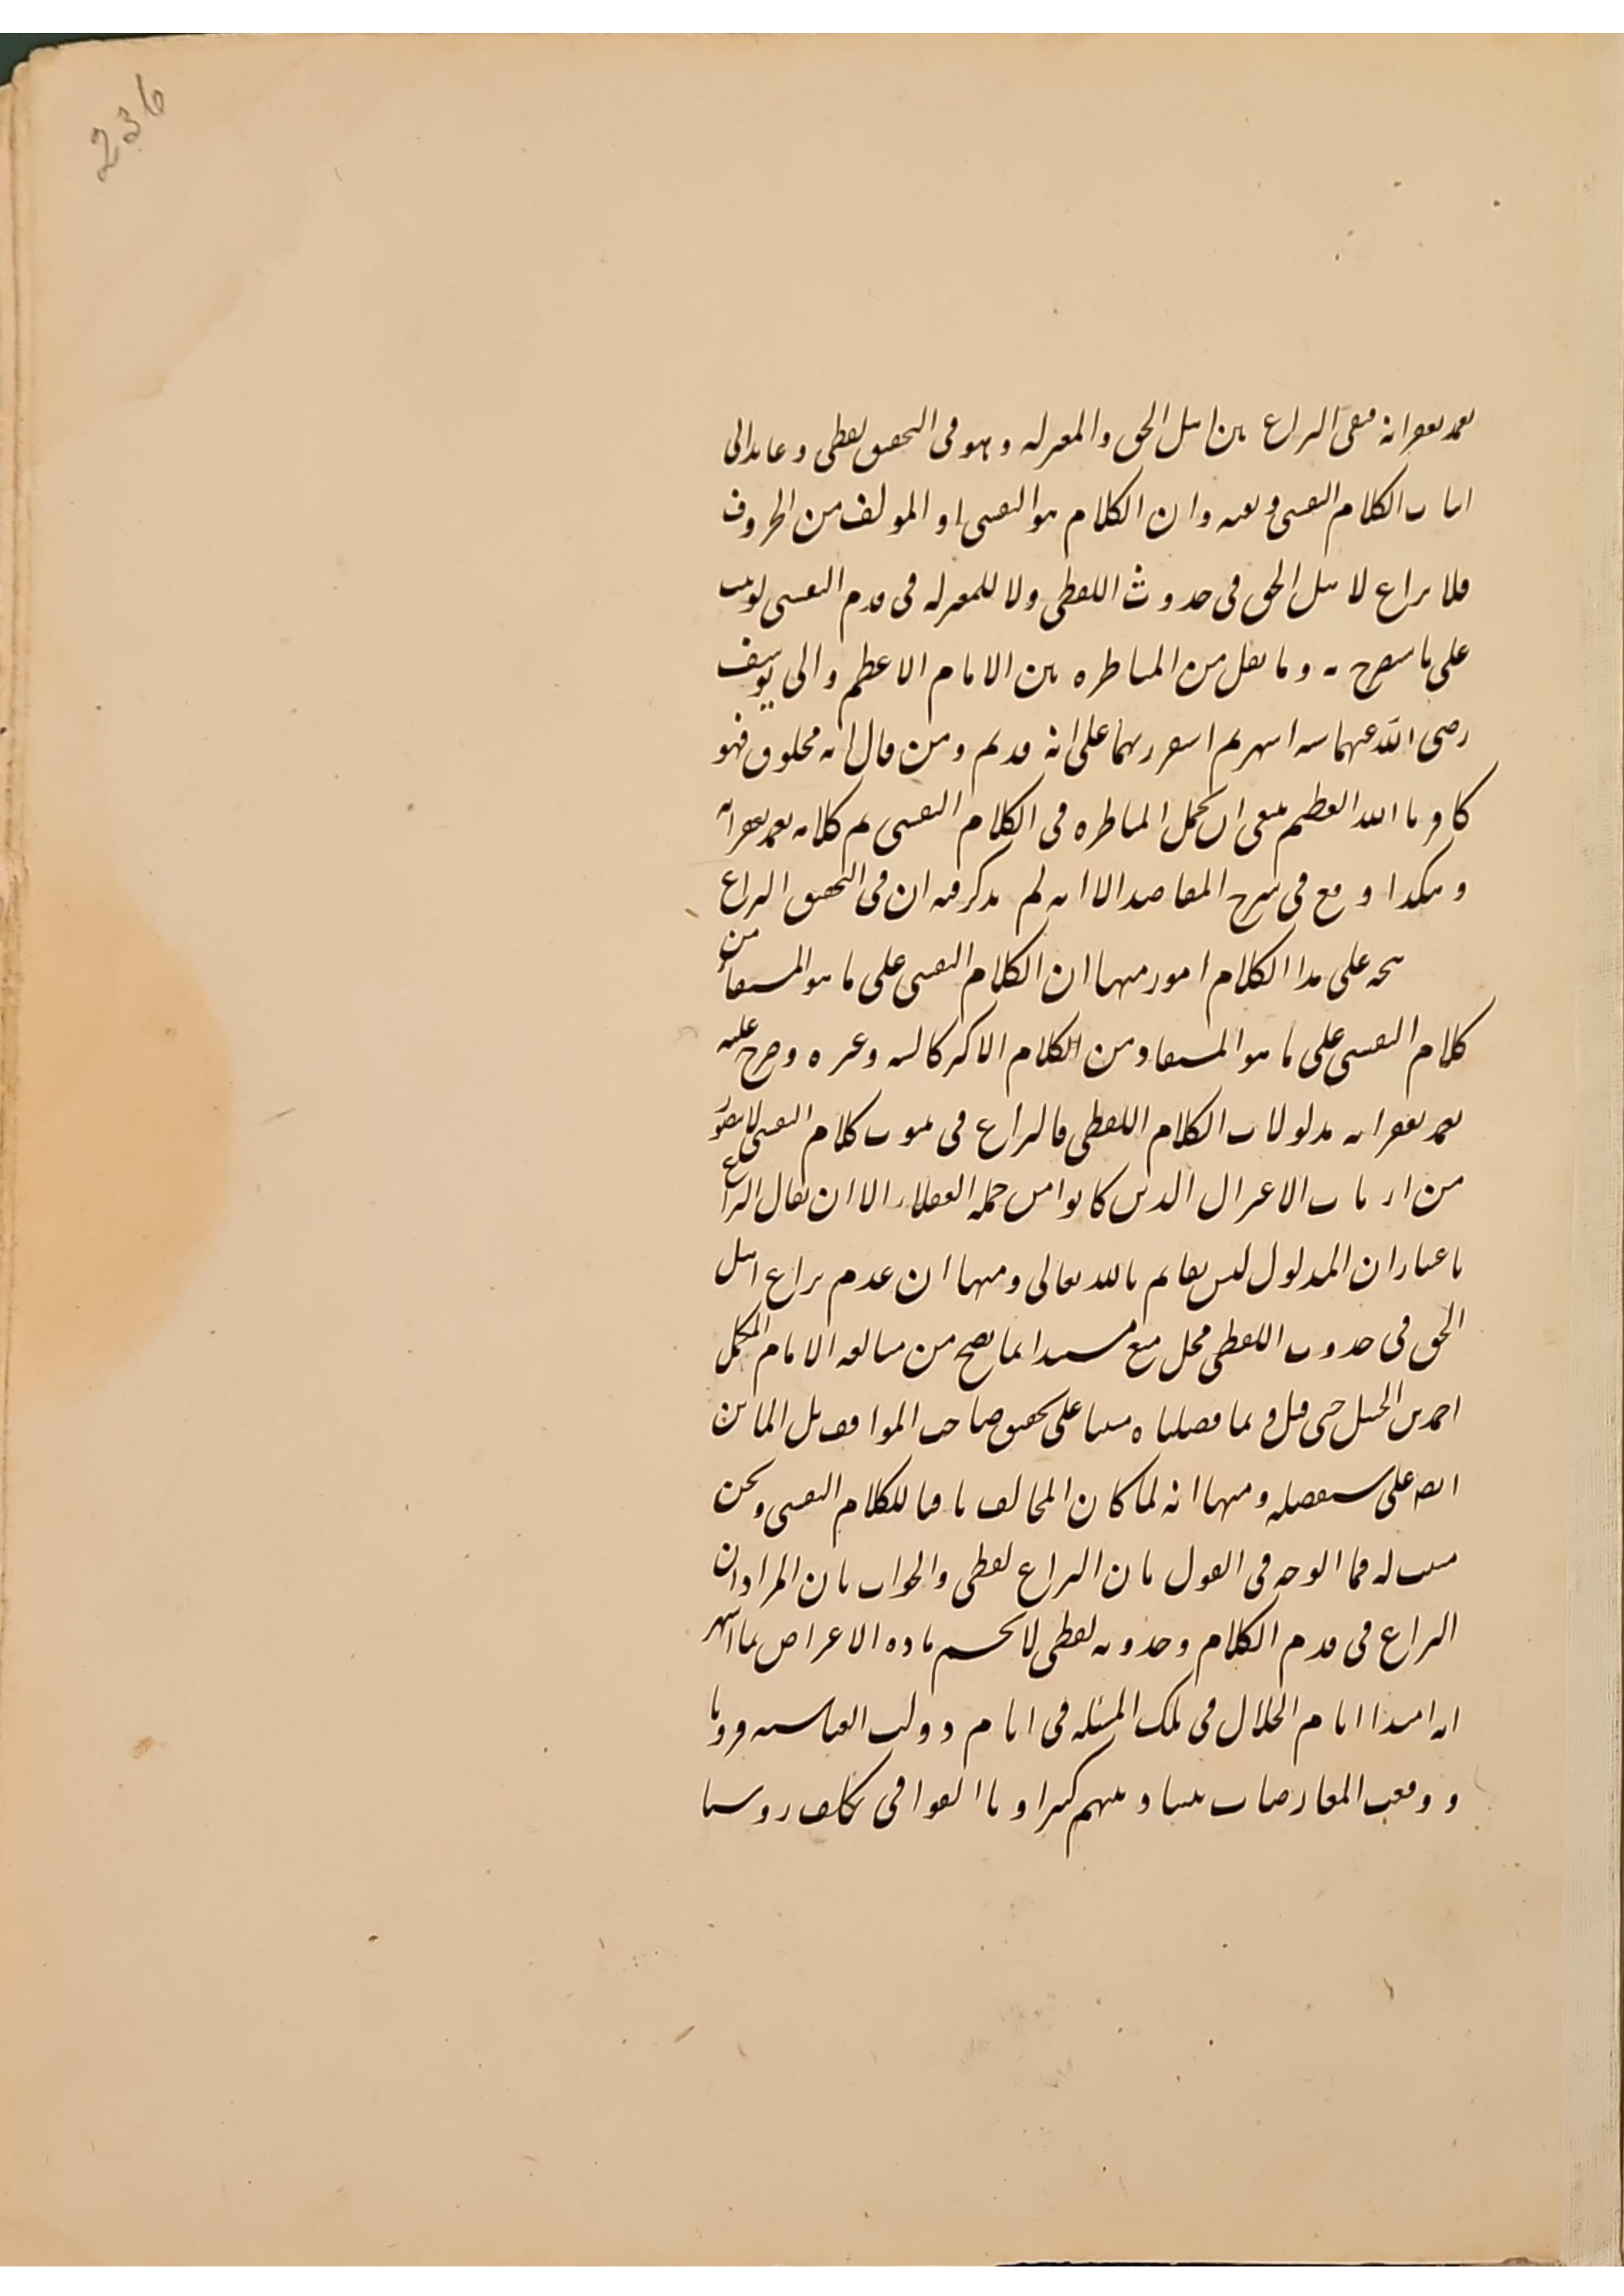 236
تغمد بغفرانه فبقى النزاع بين اهل الحق والمعتزلة وهو فى التحقيق لفظى وعايد الى
اثبات الكلام النفسى ونفيه وان الكلام هو النفسى او المولف من الحروف
فلا نزاع لاهل الحق فى حدوث اللفظى ولا للمعتزلة فى قدم النفسى لو ثبت
على ما سيصرح به وما نقل من المناظرة بين الامام الاعظم وابى يوسف
رضى الله عنهما ستة اشهر ثم استقر رايهما على انه قديم ومن قال انه مخلوق فهو
كافر بالله العظيم فينبغى ان يحمل المناظرة فى الكلام النفسى تم كلامه تغمد بغفرانه
وهكذا وقع فى شرح المقاصد الا انه لم يذكر فيه ان فى التحقيق النزاع
يتجه على هذا الكلام امور منها ان الكلام النفسى على ما هو المستفاد من
كلام النفسى على ما هو المستفاد من الكلام الاكبر كالسيد وغيره وصرح عليه
تغمد بغفرانه مدلولات الكلام اللفظى فالنزاع فى ثبوت كلام النفسى لا يتصور
من ارباب الاعتزال الذين كانوا من جملة العقلاء الا ان يقال النزاع
باعتبار ان المدلول ليس بقايم بالله تعالى ومنها ان عدم نزاع اهل
الحق فى حدوث اللفظى محل منع مستندا بما يصح من مبالغة الامام المكمل
احمد بن الحنبل حتى قيل و بما فصلناه مبينا على تحقيق صاحب المواقف بل الماتن
ايضا على ستفصله ومنها انه لما كان المخالف نافيا للكلام النفسى ونحن
مثبت له فما الوجه فى القول بان النزاع لفظى والجواب بان المراد ان
النزاع فى قدم الكلام وحدوثه لفظى لا يحسم مادة الاعتراض بما اشتهر
انه امتدا ايام الجلال فى تلك المسئلة فى ايام دولت العباسية قرونا
ووقعت المعارضات بيننا وبينهم كثيرا و